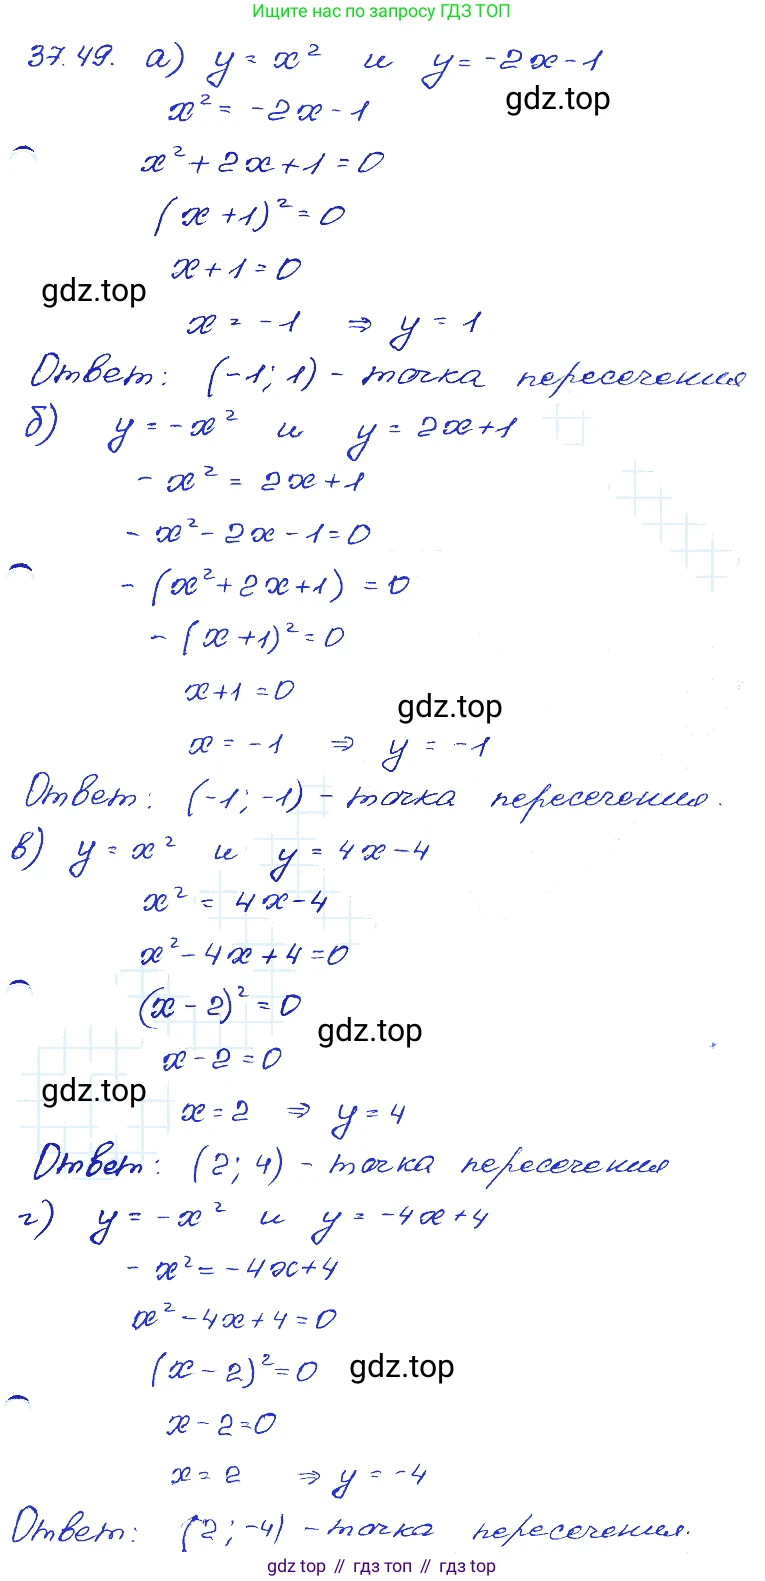 Ищите нас по запросу ГДЗ ТОП
37.49. а) y = x² и y = -2x-1
gdz.top
x² = -2x-1
x²+2x+1=0
(x+1)²=0
x+1=0
gdz.top
x = -1 ⇒ y = 1
Ответ: (-1; 1) - точка пересечения
б) y = -x² и y = 2x+1
-x² = 2x+1
-x²-2x-1=0
-(x²+2x+1) = 0
-(x+1)²=0
x+1=0
gdz.top
x = -1 ⇒ y = -1
Ответ: (-1; -1) - точка пересечения.
в) y = x² и y = 4x-4
x² = 4x-4
x²-4x+4=0
(x-2)²=0
gdz.top
x-2=0
gdz.top
x=2 ⇒ y=4
Ответ: (2; 4) - точка пересечения
г) y = -x² и y = -4x+4
-x²=-4x+4
x²-4x+4=0
(x-2)²=0
gdz.top
x-2=0
x=2 ⇒ y=-4
Ответ: (2; -4) - точка пересечения.
gdz top // гдз топ // gdz.top